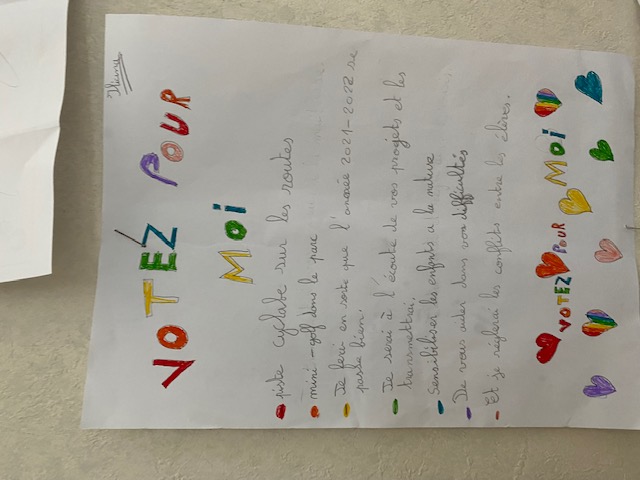 VOTEZ POUR
MOI
piste cyclabe sur les routes
mini-golf dans le parc
Je ferai en sorte que l'année 2021-2022 se
passe bien.
Je serai à l'écoute de vos projets et les
transmettrai.
Sensibiliser les enfants a la nature
De vous aider dans vos difficultés
Et je réglerai les conflits entre les élèves.
VOTEZ POUR MOI